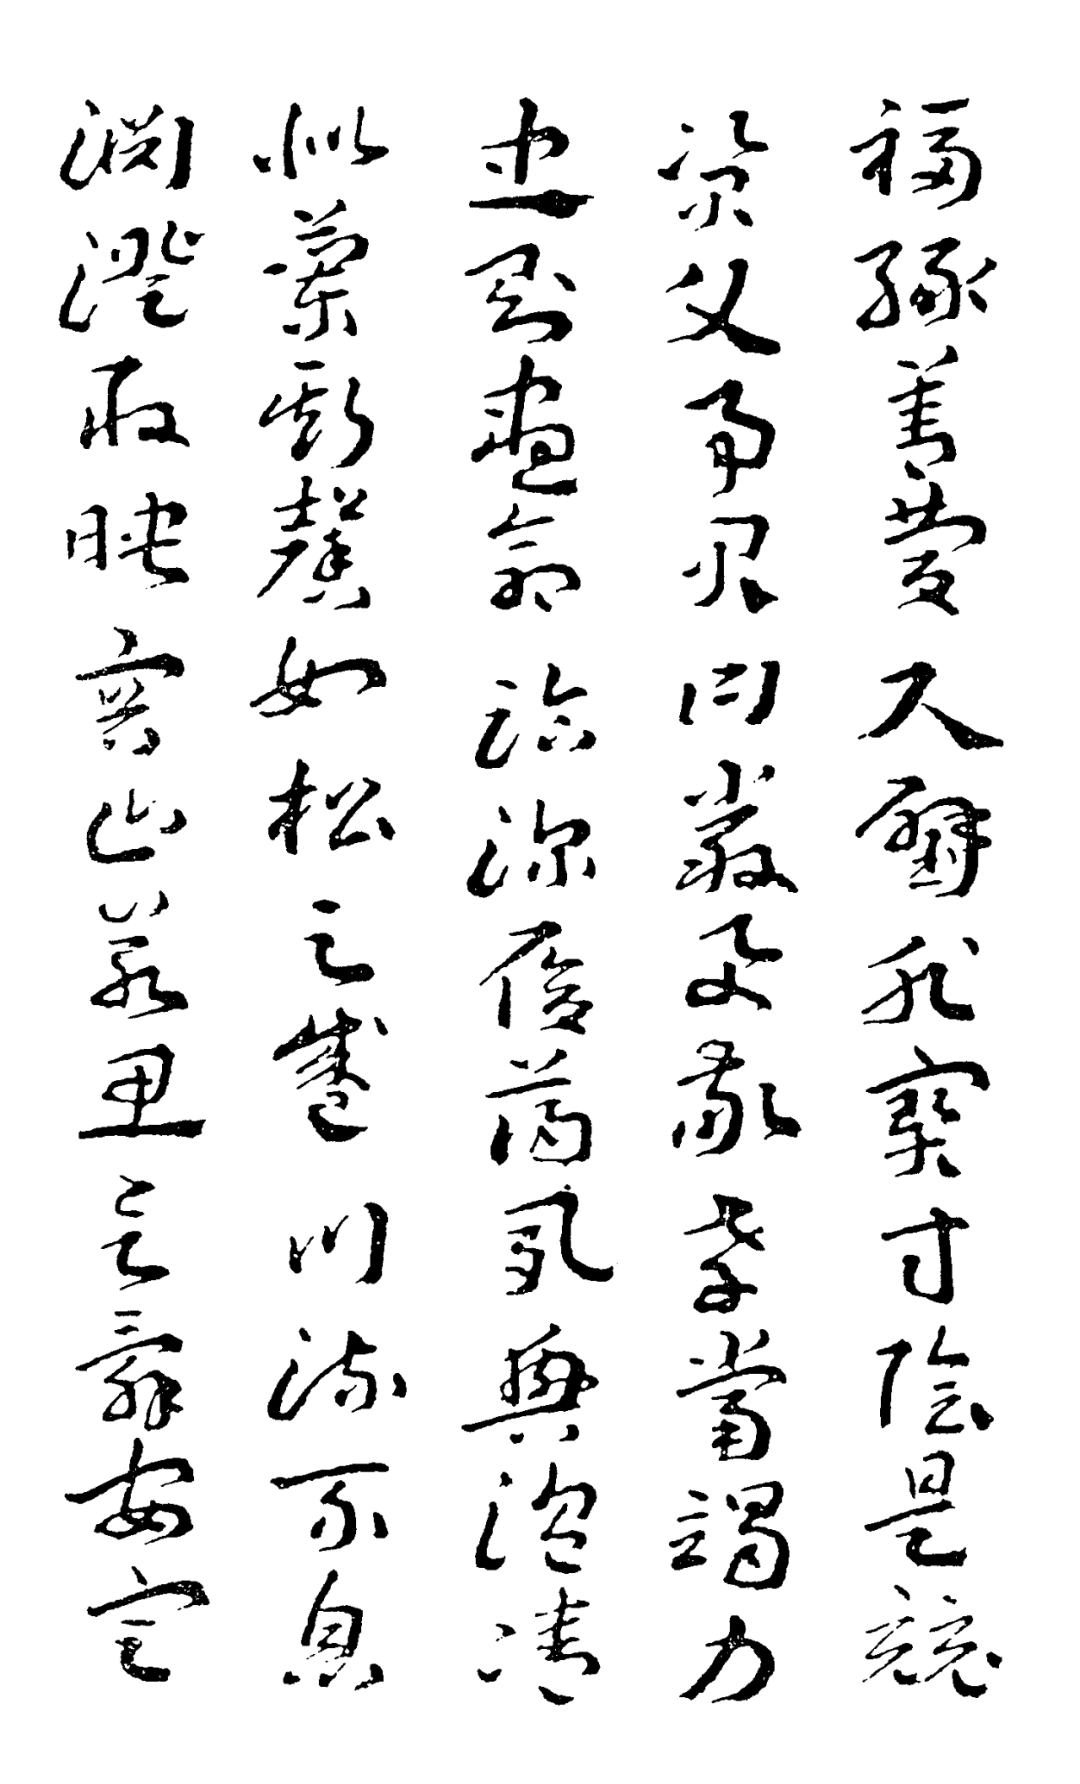 福緣善慶尺璧非寶寸陰是競
資父事君曰嚴與敬孝當竭力
忠則盡命臨深履薄夙興温凊
似蘭斯馨如松之盛川流不息
淵澄取映容止若思言辭安定